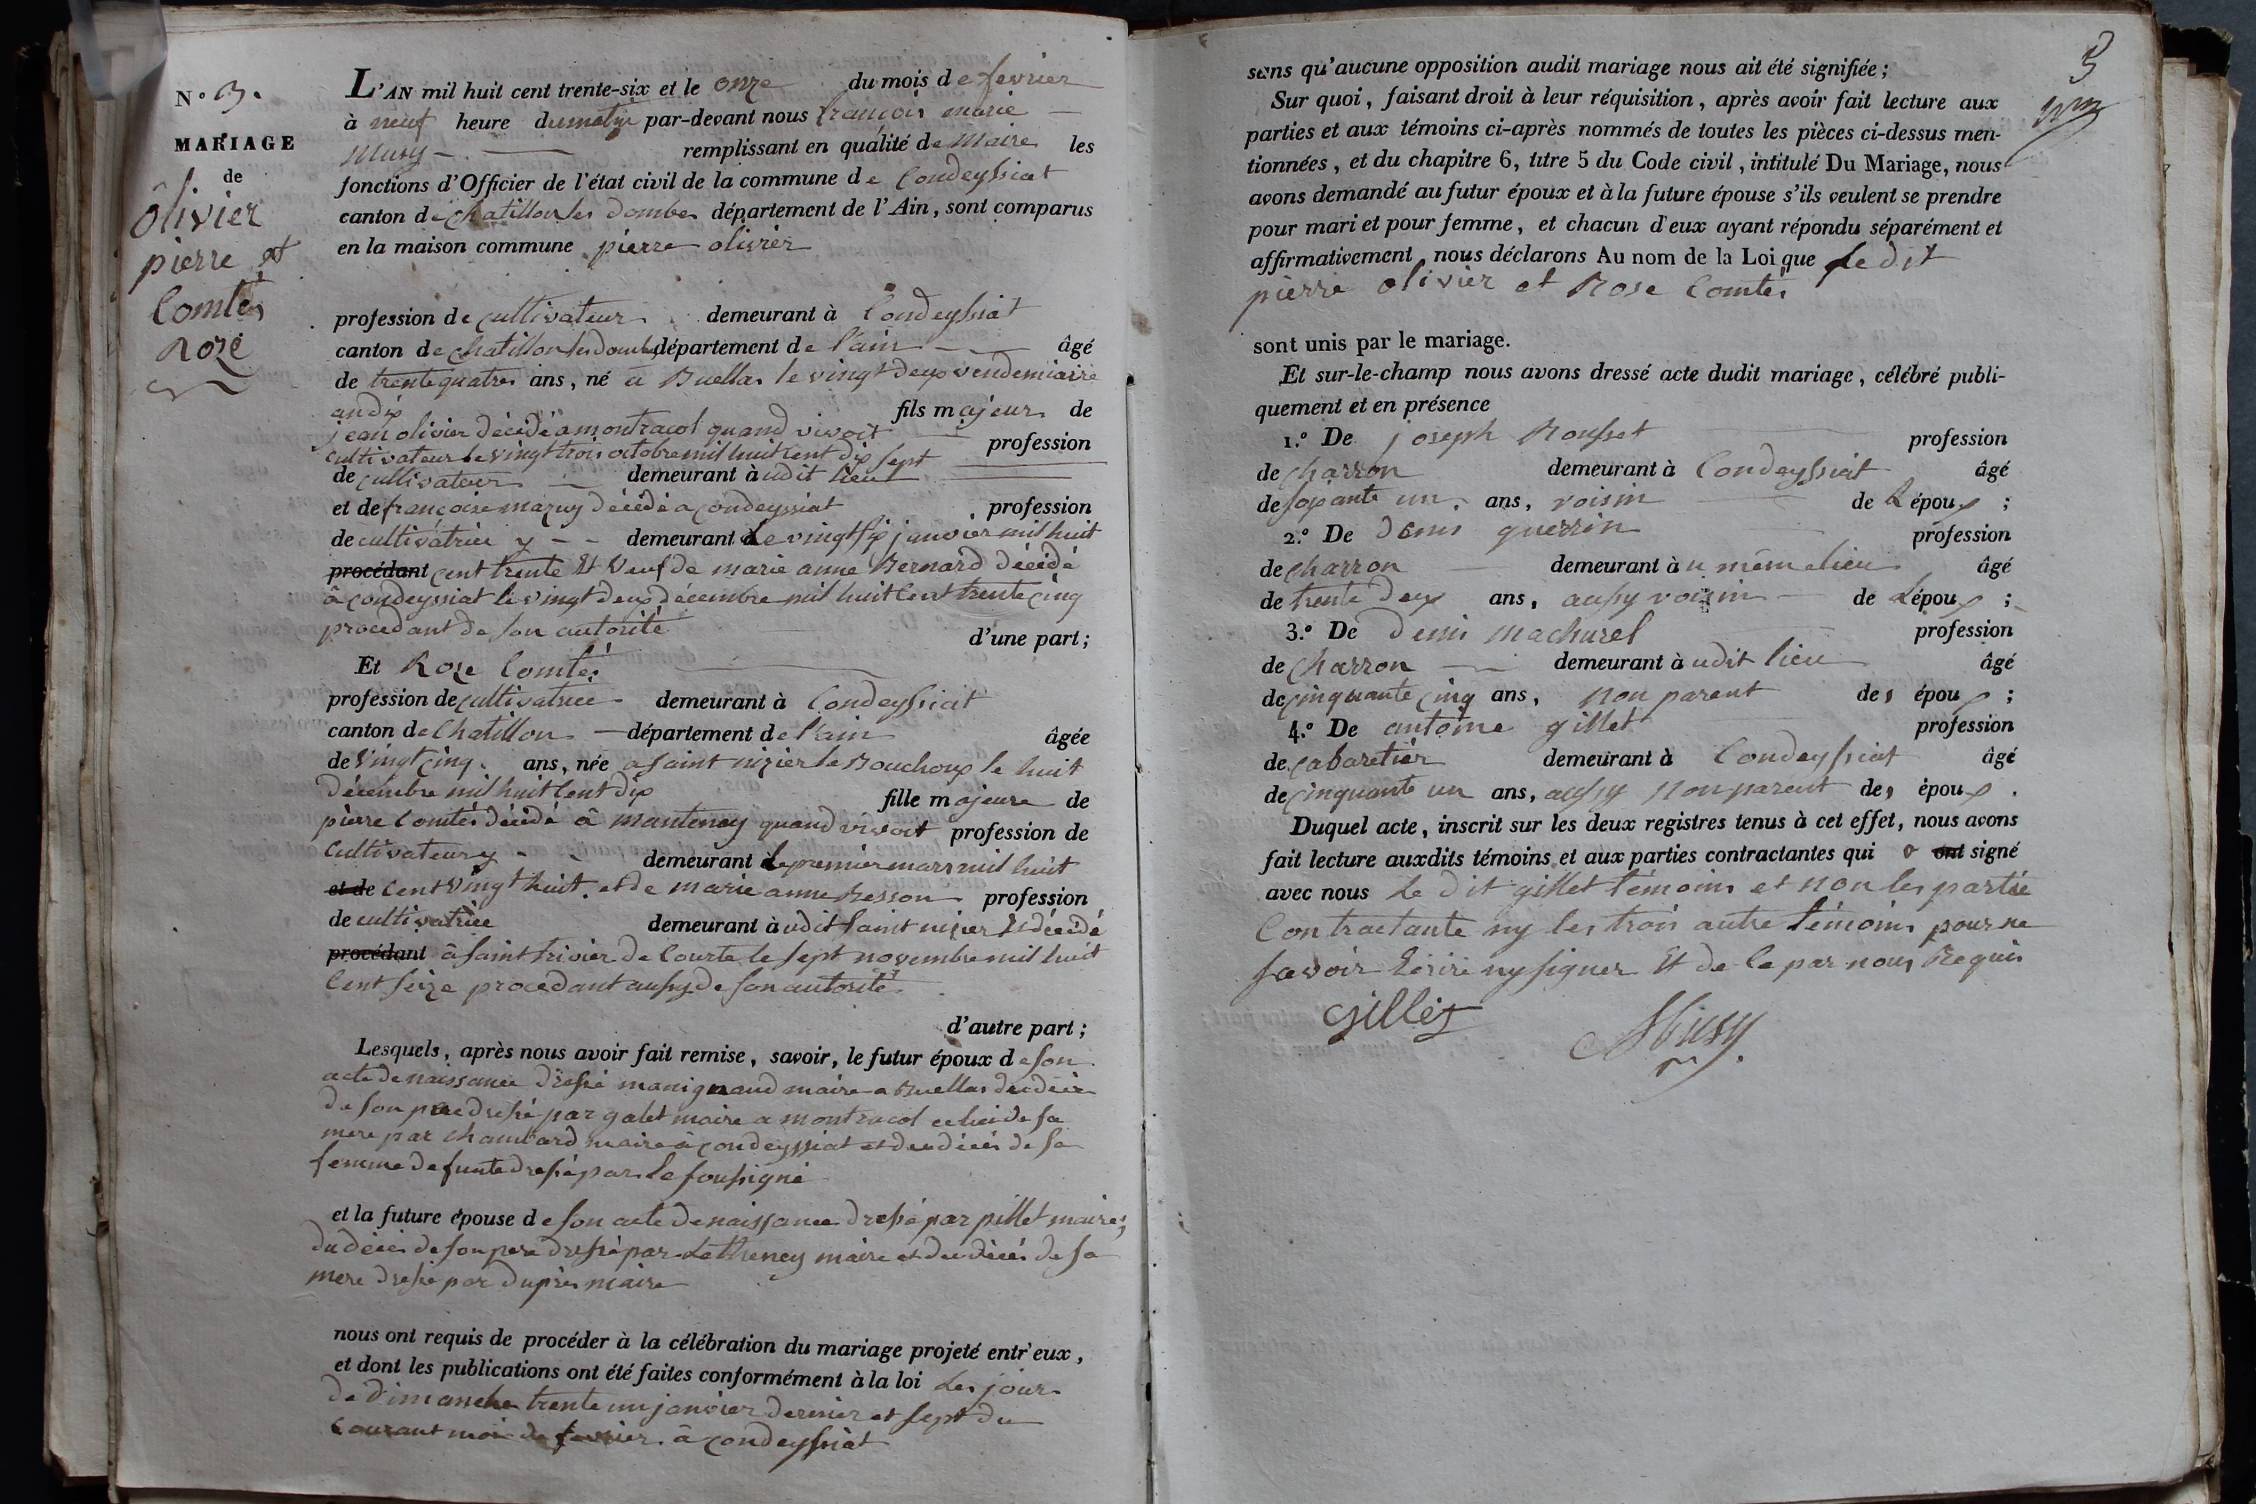 N.° 3.
MARIAGE
de
Olivier
pierre et
Comtés
Roze
L'AN mil huit cent trente-six et le onze du mois de fevrier
à neuf heure dumatin par-devant nous françois marie
Musy remplissant en qualité de Maire les
fonctions d'Officier de l'état civil de la commune de Condeyssiat
canton de chatillon les dombes département de l'Ain, sont comparus
en la maison commune pierre olivier
profession de cultivateur demeurant à Condeyssiat
canton de chatillon les dombes département de l'ain âgé
de trente quatres ans, né à Buellas le vingt deux vendemiaire
an dix fils majeur de
jean olivier décédé a montracol quand vivoit profession
cultivateur le vingt trois octobre mil huit cent dix sept
de cultivateur demeurant à udit lieu
et de françoise mazuy décédé a condeyssiat profession
de cultivatrice y demeurant le vingt six janvier mil huit
procédant cent trente Et veuf de marie anne Bernard décédé
à condeyssiat le vingt deux décembre mil huit cent trente cinq
procedant de son autorité d'une part;
Et Roze Comtés
profession de cultivatrice demeurant à Condeyssiat
canton de Chatillon département de l'ain âgée
de vingt cinq ans, née a saint nizier le Bouchoux le huit
décembre mil huit cent dix fille majeure de
pierre Comtés décédé à mantenay quand vivoit profession de
cultivateur y demeurant le premier mars mil huit
et de cent vingt huit et de marie anne Besson profession
de cultivatrice demeurant à udit saint nizier Et décédé
procédant à saint trivier de Courte le sept novembre mil huit
Cent seize procedant aussy de son autorité
d'autre part;
Lesquels, après nous avoir fait remise, savoir, le futur époux de son
acte de naissance dressé manignand maire a Buellas du décés
de son pere dressé par galet maire a montracol celui de sa
mere par chambard maire à condeyssiat et du décés de sa
femme defunte dressé par le soussigné
et la future épouse de son acte de naissance dressé par pillet maire;
du décés de son pere dressé par maire et du décés de sa
mere dressé par duprés maire
nous ont requis de procéder à la célébration du mariage projeté entr'eux,
et dont les publications ont été faites conformément à la loi Les jour
de dimanche trente un janvier dernier et sept du
courant mois de fevrier à condeyssiat
3
sans qu'aucune opposition audit mariage nous ait été signifiée;
Sur quoi, faisant droit à leur réquisition, après avoir fait lecture aux
parties et aux témoins ci-après nommés de toutes les pièces ci-dessus men-
tionnées, et du chapitre 6, titre 5 du Code civil, intitulé Du Mariage, nous
avons demandé au futur époux et à la future épouse s'ils veulent se prendre
pour mari et pour femme, et chacun d'eux ayant répondu séparément et
affirmativement, nous déclarons Au nom de la Loi que Ledit
pierre olivier et Rose Comtés
sont unis par le mariage.
Et sur-le-champ nous avons dressé acte dudit mariage, célébré publi-
quement et en présence
1.° De joseph Rousset profession
de charron demeurant à Condeyssiat âgé
de soixante un ans, voisin de L'époux;
2.° De denis guerrin profession
de charron demeurant à u même lieu âgé
de trente deux ans, aussy voisin de L'époux;
3.° De denis machurel profession
de charron demeurant à udit lieu âgé
de cinquante cinq ans, non parent des époux;
4.° De antoine gillet profession
de cabaretier demeurant à Condeyssiat âgé
de cinquante un ans, aussy non parent des époux.
Duquel acte, inscrit sur les deux registres tenus à cet effet, nous avons
fait lecture auxdits témoins et aux parties contractantes qui ont signé
avec nous Le dit gillet témoins et non les partie
Contractante ny les trois autre témoins pour ne
savoir Ecrire ny signer Et de ce par nous Requis
Gillet
Musy